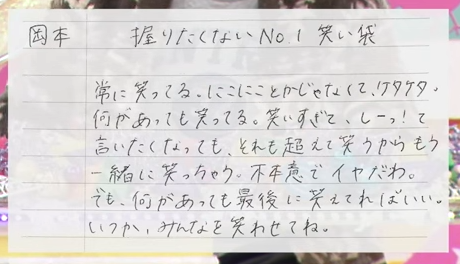 岡本 握りたくないNo.1 笑い袋
常に笑ってる、にこにことかじゃなくて、ケタケタ。
何があっても笑ってる。笑いすぎて、しーっ!て
言いたくなっても、それも超えて笑うからもう
一緒に笑っちゃう。不本意でイヤだわ。
でも、何があっても最後に笑えてればいい。
いつか、みんなを笑わせてね。